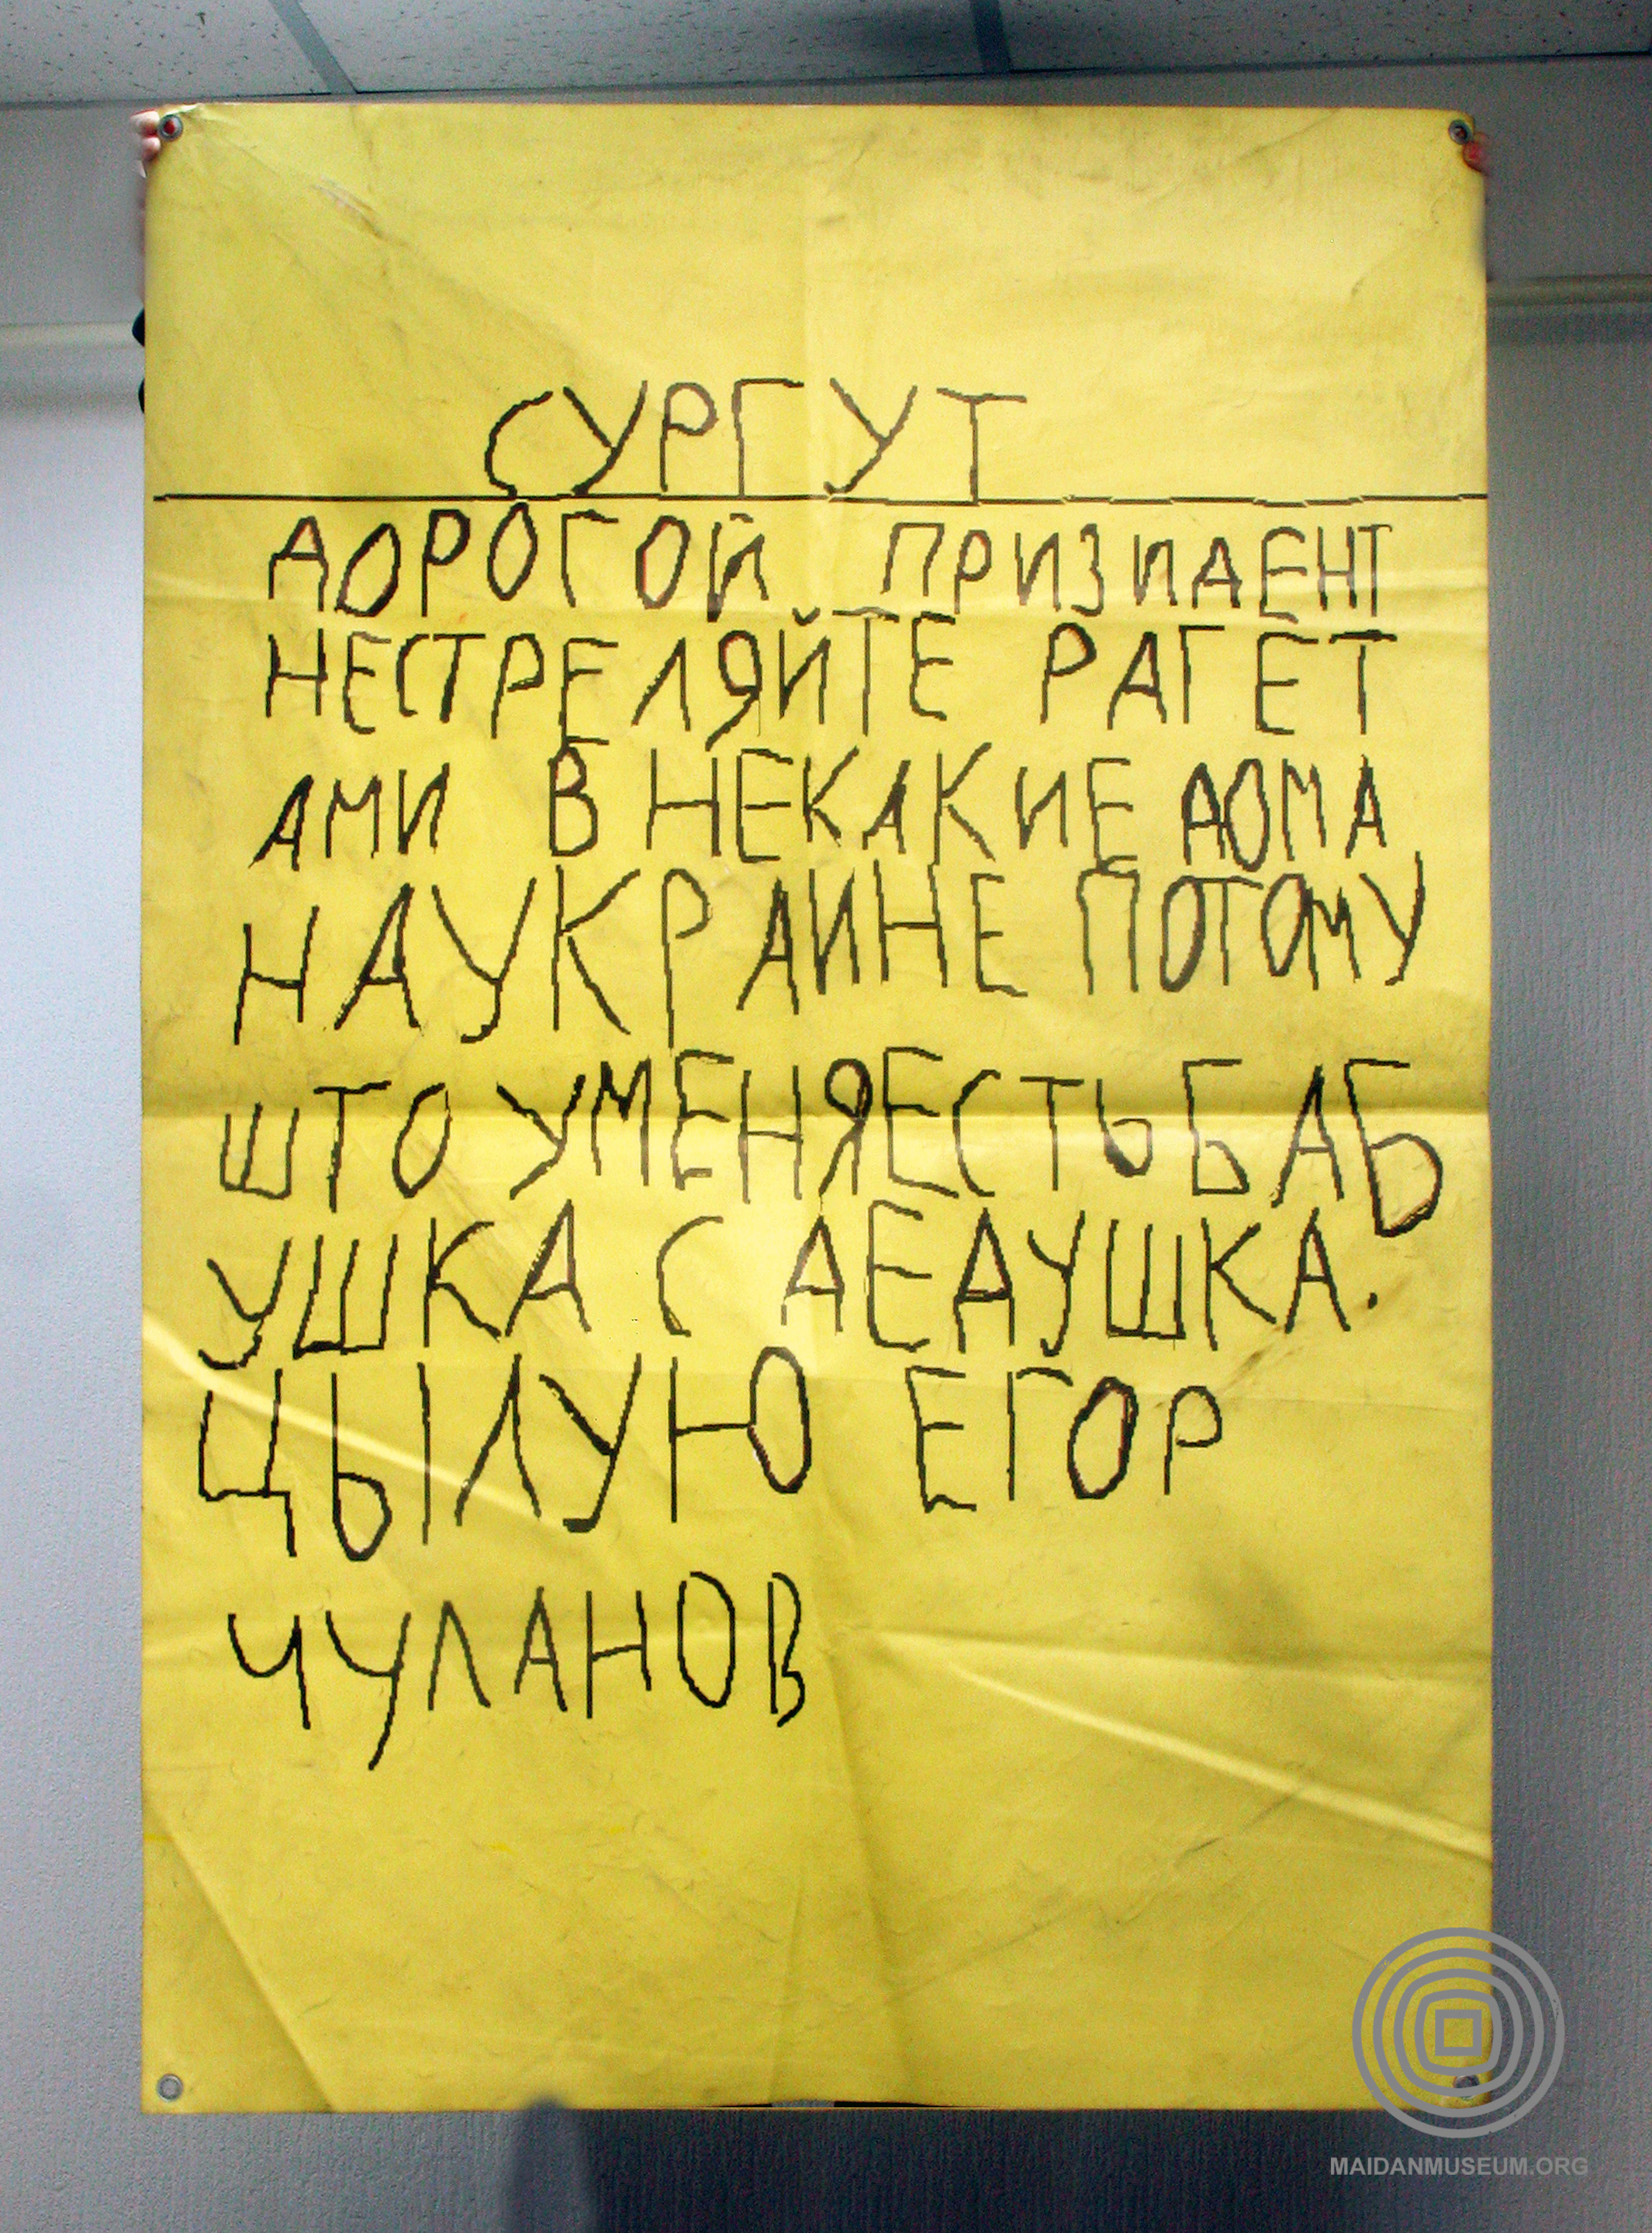 СУРГУТ
ДОРОГОЙ ПРИЗИДЕНТ
НЕСТРЕЛЯЙТЕ РАГЕТ
АМИ В НЕКАКИЕ ДОМА
НАУКРАИНЕ ПОТОМУ
ШТО УМЕНЯЕСТЬ БАБ
УШКА С ДЕДУШКА.
ЦЫЛУЮ ЕГОР
ЧУЛАНОВ
MAIDANMUSEUM.ORG